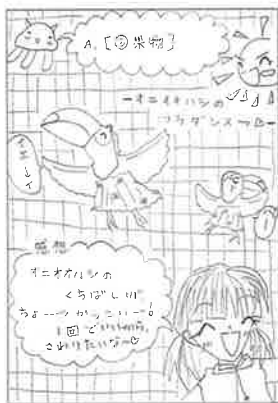 A.【③果物】
ーオニオオハシの
フラダンスー
イエーイ
感想
オニオオハシの
くちばしが
ちょーーかっこいー!
1回でいいから、
さわりたいなー♡